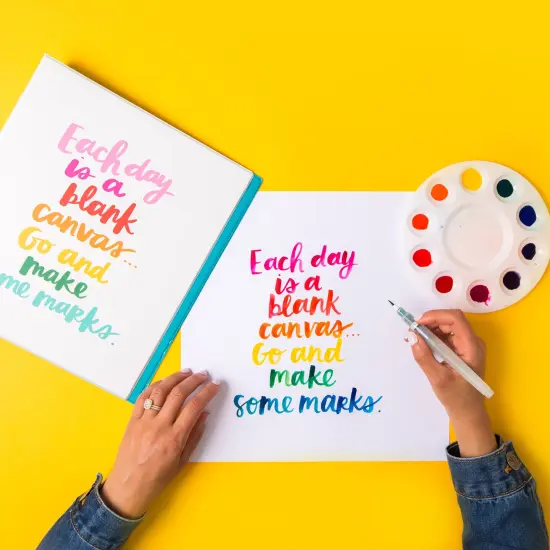 Each day
is a
blank
canvas...
Go and
make
me marks.
Each day
is a
blank
canvas...
Go and
make
some marks.